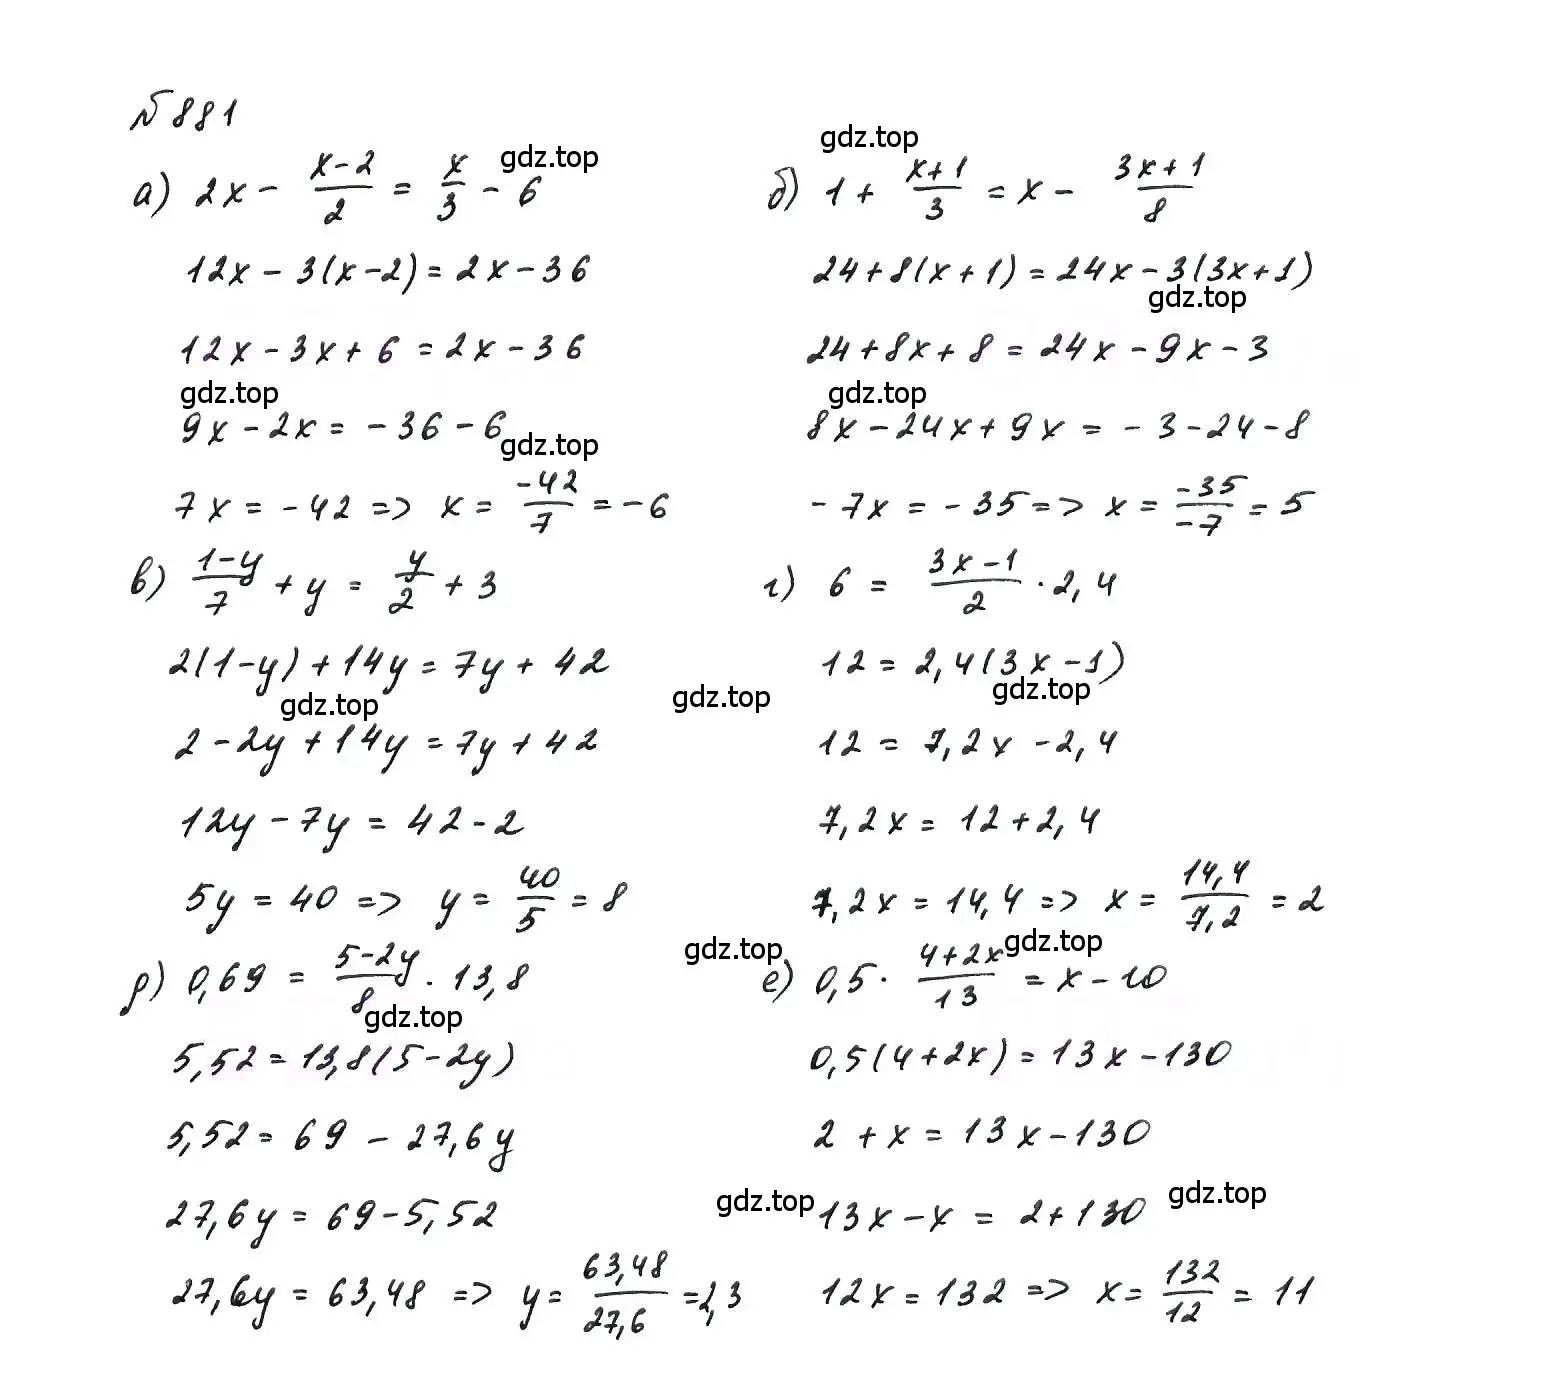 № 881
а) 2x - (x-2)/2 = x/3 - 6
12x - 3(x-2) = 2x - 36
12x - 3x + 6 = 2x - 36
9x - 2x = -36 - 6
7x = -42 => x = -42/7 = -6
б) 1 + (x+1)/3 = x - (3x+1)/8
24 + 8(x+1) = 24x - 3(3x+1)
24 + 8x + 8 = 24x - 9x - 3
8x - 24x + 9x = -3 - 24 - 8
-7x = -35 => x = -35/-7 = 5
в) (1-y)/7 + y = y/2 + 3
2(1-y) + 14y = 7y + 42
2 - 2y + 14y = 7y + 42
12y - 7y = 42 - 2
5y = 40 => y = 40/5 = 8
г) 6 = (3x-1)/2 · 2,4
12 = 2,4(3x-1)
12 = 7,2x - 2,4
7,2x = 12 + 2,4
7,2x = 14,4 => x = 14,4/7,2 = 2
д) 0,69 = (5-2y)/8 · 13,8
5,52 = 13,8(5-2y)
5,52 = 69 - 27,6y
27,6y = 69 - 5,52
27,6y = 63,48 => y = 63,48/27,6 = 2,3
е) 0,5 · (4+2x)/13 = x - 10
0,5(4+2x) = 13x - 130
2 + x = 13x - 130
13x - x = 2 + 130
12x = 132 => x = 132/12 = 11
gdz.top
gdz.top
gdz.top
gdz.top
gdz.top
gdz.top
gdz.top
gdz.top
gdz.top
gdz.top
gdz.top
gdz.top
gdz.top
gdz.top